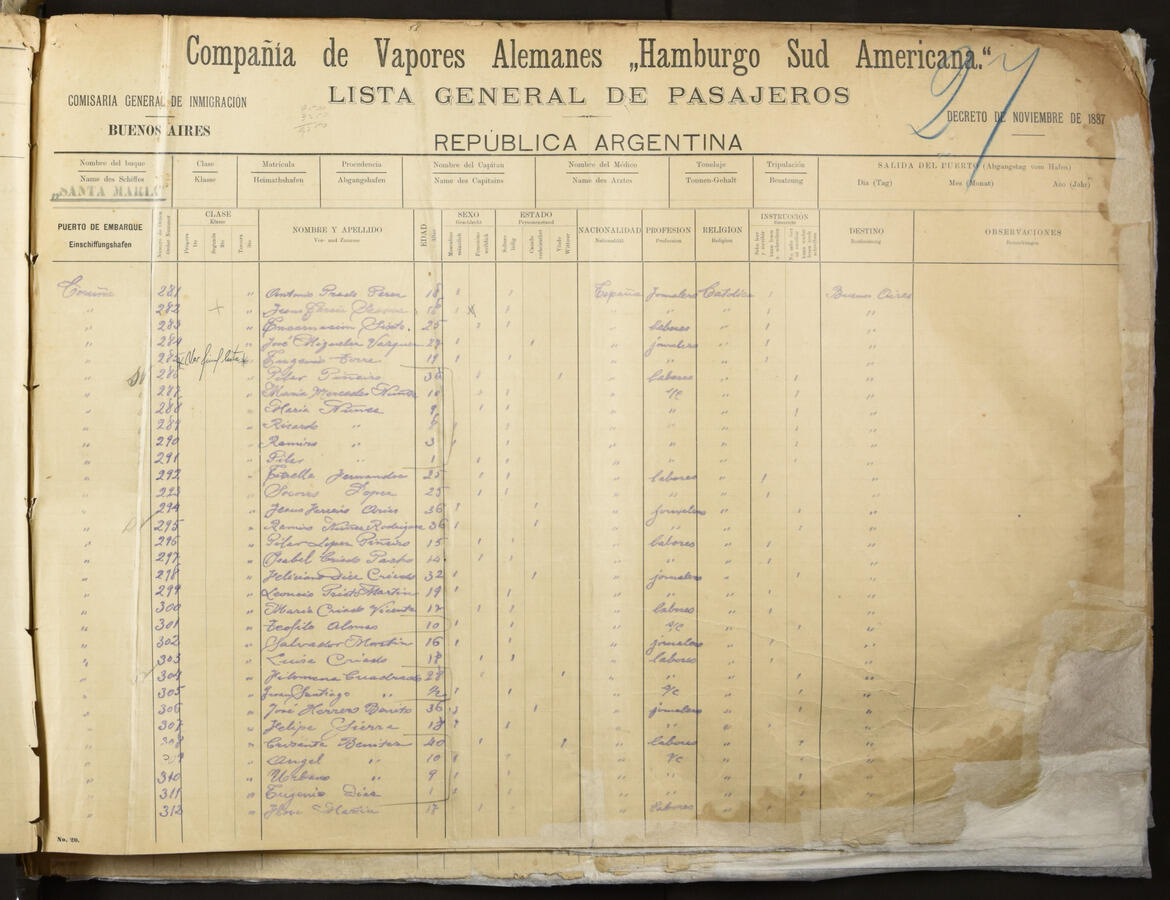 Compañía de Vapores Alemanes „Hamburgo Sud Americana.“
27
COMISARIA GENERAL DE INMIGRACIÓN
LISTA GENERAL DE PASAJEROS
BUENOS AIRES
DECRETO DE NOVIEMBRE DE 1887
REPÚBLICA ARGENTINA
Nombre del buque Clase Matrícula Procedencia Nombre del Capitan Nombre del Médico Tonelaje Tripulación SALIDA DEL PUERTO (Abgangstag vom Hafen)
Name des Schiffes Klasse Heimathshafen Abgangshafen Name des Capitains Name des Arztes Tonnen-Gehalt Besatzung Dia (Tag) Mes (Monat) Año (Jahr)
„SANTA MARIA“
PUERTO DE EMBARQUE CLASE NOMBRE Y APELLIDO EDAD SEXO ESTADO NACIONALIDAD PROFESION RELIGION INSTRUCCIÓN DESTINO OBSERVACIONES
Einschiffungshafen Klasse Vor- und Zuname Geschlecht Personenstand Nationalität Profession Religion Bestimmung Bemerkungen
Coruña 281 " Antonio Prado Perez 18 España Jornalero Católica Buenos Aires
" 282 + " 18 x " " "
" 283 " Encarnacion 25 " labores " "
" 284 " José Vazquez " jornalero " "
" 285 " Eugenio Torre 19 " " " "
" 286 " Pilar Piñeiro 36 " labores " "
" 287 " Maria Mercedes Nuñez 10 " s/c " "
" 288 " Maria Nuñez 9 " " " "
" 289 " Ricardo " " " " "
" 290 " Ramiro " 3 " " " "
" 291 " Pilar " 1 " " " "
" 292 " Estrella Fernandez 25 " labores " "
" 293 " Lopez 25 " " " "
" 294 " Jesus Ferreiro Arias 36 " jornalero " "
" 295 " Ramiro Nuñez Rodriguez 36 " " " "
" 296 " Pilar Lopez Piñeiro 15 " labores " "
" 297 " Isabel Criado 14 " " " "
" 298 " Feliciano Diez Criado 32 " jornalero " "
" 299 " Leoncio Prieto Martin 19 " " " "
" 300 " Maria Criado Vicente 17 " labores " "
" 301 " Teofilo Alonso 10 " s/c " "
" 302 " Salvador Martin 16 " jornalero " "
" 303 " Luisa Criado 18 " labores " "
" 304 " Filomena Cuadrado 28 " " " "
" 305 " Juan Santiago " " s/c " "
" 306 " José Herrero Benito 36 " jornalero " "
" 307 " Felipe Sierra 18 " " " "
" 308 " Benitez 40 " labores " "
" " Angel " 10 " s/c " "
" 310 " Urbano " 9 " " " "
" 311 " Eugenio Diez 1 " " " "
" 312 " Maria 17 " labores " "
No. 20.